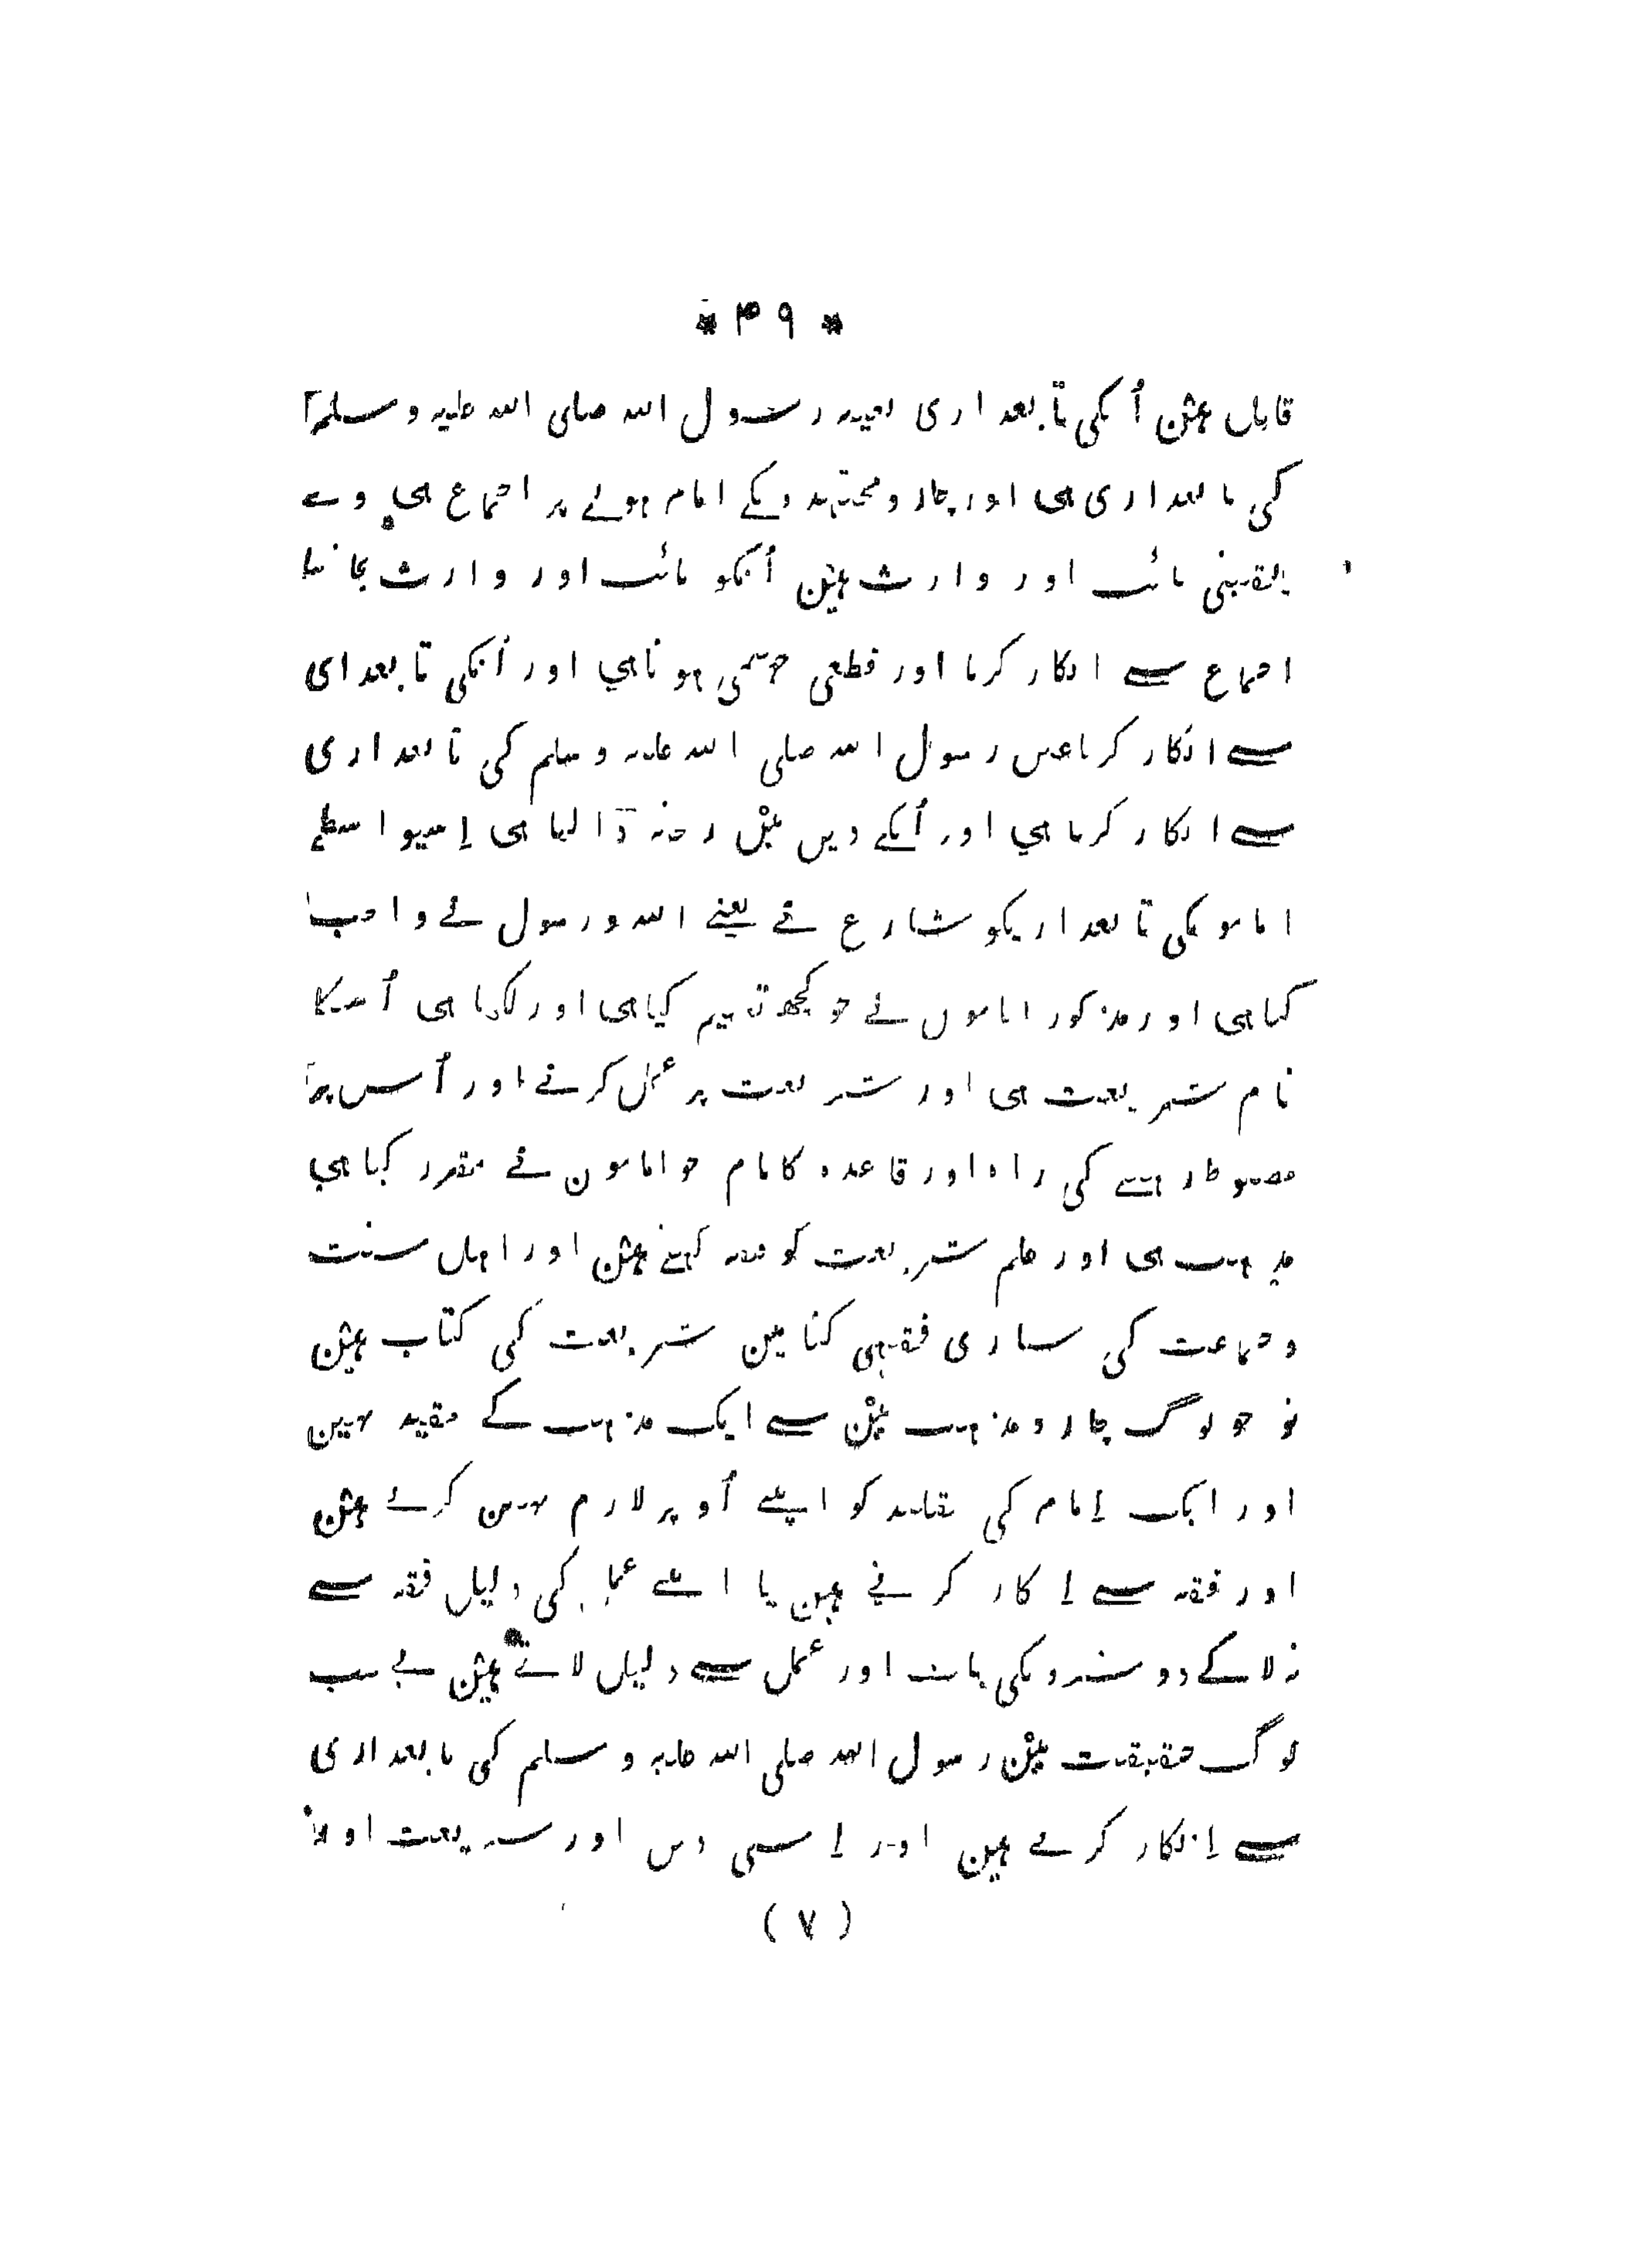 * ۴۹ *
قابل ہین اُنکی تابعداری بعینہ رسول اللہ صلی اللہ علیہ وسلم
کی تابعداری ہی اور چارو مجتہدونکے امام ہونے پر اجماع ہی وے
یقینی نائب اور وارث ہین اُنکو نائب اور وارث نجاننا
اجماع سے انکار کرنا اور قطعی جہنمی ہوناہی اور اُنکی تابعدای
سے انکار کرنا عین رسول اللہ صلی اللہ علیہ وسلم کی تابعداری
سے انکار کرنا ہی اور اُنکے دین مین رخنہ ڈالنا ہی اِسیواسطے
امامونکی تابعداریکو شارع نے یعنے اللہ ورسول نے واجب
کیاہی اور مذکور اماموں نے جو کچھ تفہیم کیاہی اور لکھا ہی اُسکا
نام شریعت ہی اور شریعت پر عمل کرنے اور اُس پر
مضبوط رہنے کی راہ اور قاعدہ کا نام جو امامون نے مقرر کیا ہی
مذہب ہی اور علم شریعت کو فقہ کہتے ہین اور اہل سنت
وجماعت کی ساری فقہی کتابین شریعت کی کتاب ہین
تو جو لوگ چارو مذہب مین سے ایک مذہب کے مقید نہین
اور ایک اِمام کی تقلید کو اپنے اُوپر لازم نہین کرتے ہین
اور فقہ سے اِنکار کرتے ہین یا اپنے عمل کی دلیل فقہ سے
نہ لاکے دوسرونکی بات اور عمل سے دلیل لاتے ہین یے سب
لوگ حقیقت مین رسول اللہ صلی اللہ علیہ وسلم کی تابعداری
سے اِنکار کرتے ہین اور اِسی دین اور شریعت اور
( ۷ )